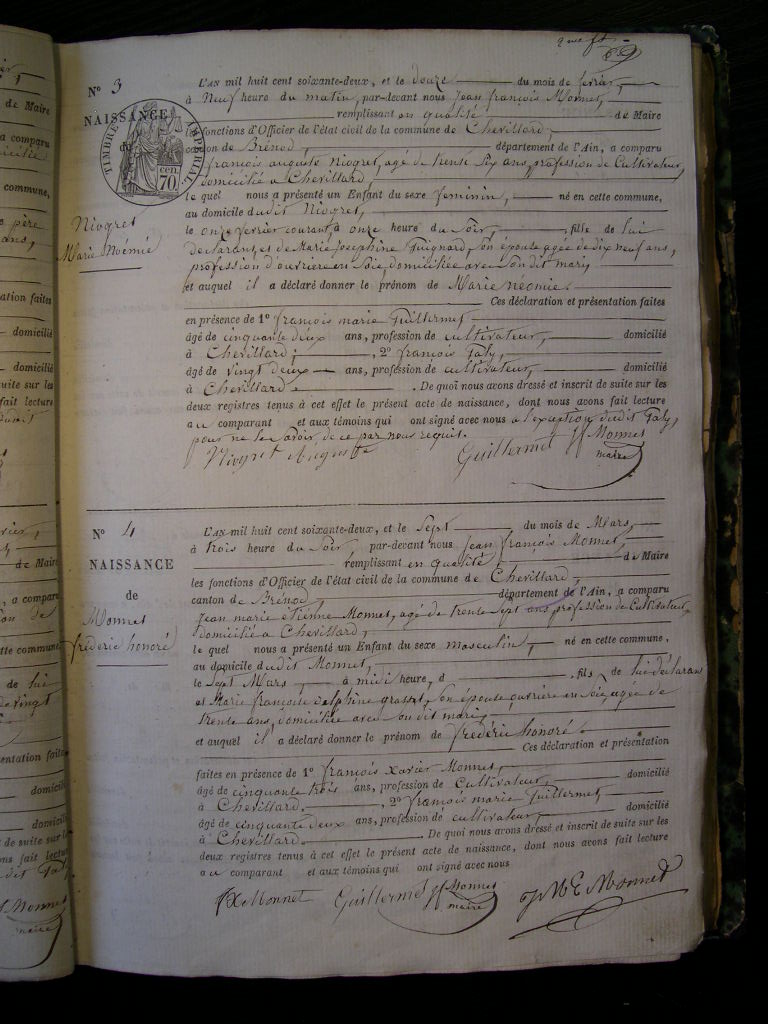 69
N° 3
NAISSANCE
du
Niogret
Marie Noémie
TIMBRE IMPÉRIAL
70 cen.
L'AN mil huit cent soixante-deux, et le douze du mois de fevrier,
à Neuf heure du matin, par-devant nous Jean françois Monnet,
remplissant en qualité de Maire
les fonctions d'Officier de l'état civil de la commune de Chevillard,
canton de Brénod, département de l'Ain, a comparu
françois auguste Niogret, agé de trente Six ans, profession de Cultivateur,
domicilié a Chevillard,
le quel nous a présenté un Enfant du sexe feminin, né en cette commune,
au domicile dudit Niogret,
le onze fevrier courant, à onze heure du Soir, , fille de lui
declarant, et de Marie Josephine Guignard, Son épouse agée de dix neuf ans,
profession d'ouvriere en Soie, domiciliée avec Son dit mary
et auquel il a déclaré donner le prénom de Marie néomie.
Ces déclaration et présentation faites
en présence de 1° françois marie Guillermet
âgé de cinquante deux ans, profession de cultivateur, domicilié
à Chevillard, , 2° françois Faly,
âgé de vingt deux ans, profession de cultivateur, domicilié
à Chevillard. . De quoi nous avons dressé et inscrit de suite sur les
deux registres tenus à cet effet le présent acte de naissance, dont nous avons fait lecture
au comparant et aux témoins qui ont signé avec nous a l'exception dudit Faly,
pour ne le Savoir, de ce par nous requis.
Niogret Auguste Guillermet Jf Monnet
maire
N° 4
NAISSANCE
de
Monnet
frédéric honoré
L'AN mil huit cent soixante-deux, et le Sept du mois de Mars,
à trois heure du Soir, par-devant nous Jean françois Monnet,
remplissant en qualité de Maire
les fonctions d'Officier de l'état civil de la commune de Chevillard,
canton de Brénod, département de l'Ain, a comparu
Jean marie étienne Monnet, agé de trente Sept ans, profession de Cultivateur,
domicilié a Chevillard,
le quel nous a présenté un Enfant du sexe masculin, né en cette commune,
au domicile dudit Monnet,
le Sept Mars, à midi heure, d , fils de lui déclarant
et Marie françoise delphine grasset, Son épouse ouvrière en Soie, agée de
trente ans, domiciliée avec Son dit mary,
et auquel il a déclaré donner le prénom de frédéric honoré.
Ces déclaration et présentation
faites en présence de 1° françois Xavier Monnet,
âgé de cinquante trois ans, profession de Cultivateur, domicilié
à Chevillard. , 2° françois marie Guillermet,
âgé de cinquante deux ans, profession de cultivateur, domicilié
à Chevillard. De quoi nous avons dressé et inscrit de suite sur les
deux registres tenus à cet effet le présent acte de naissance, dont nous avons fait lecture
au comparant et aux témoins qui ont signé avec nous
fXMonnet Guillermet Jf Monnet JMEMonnet
maire